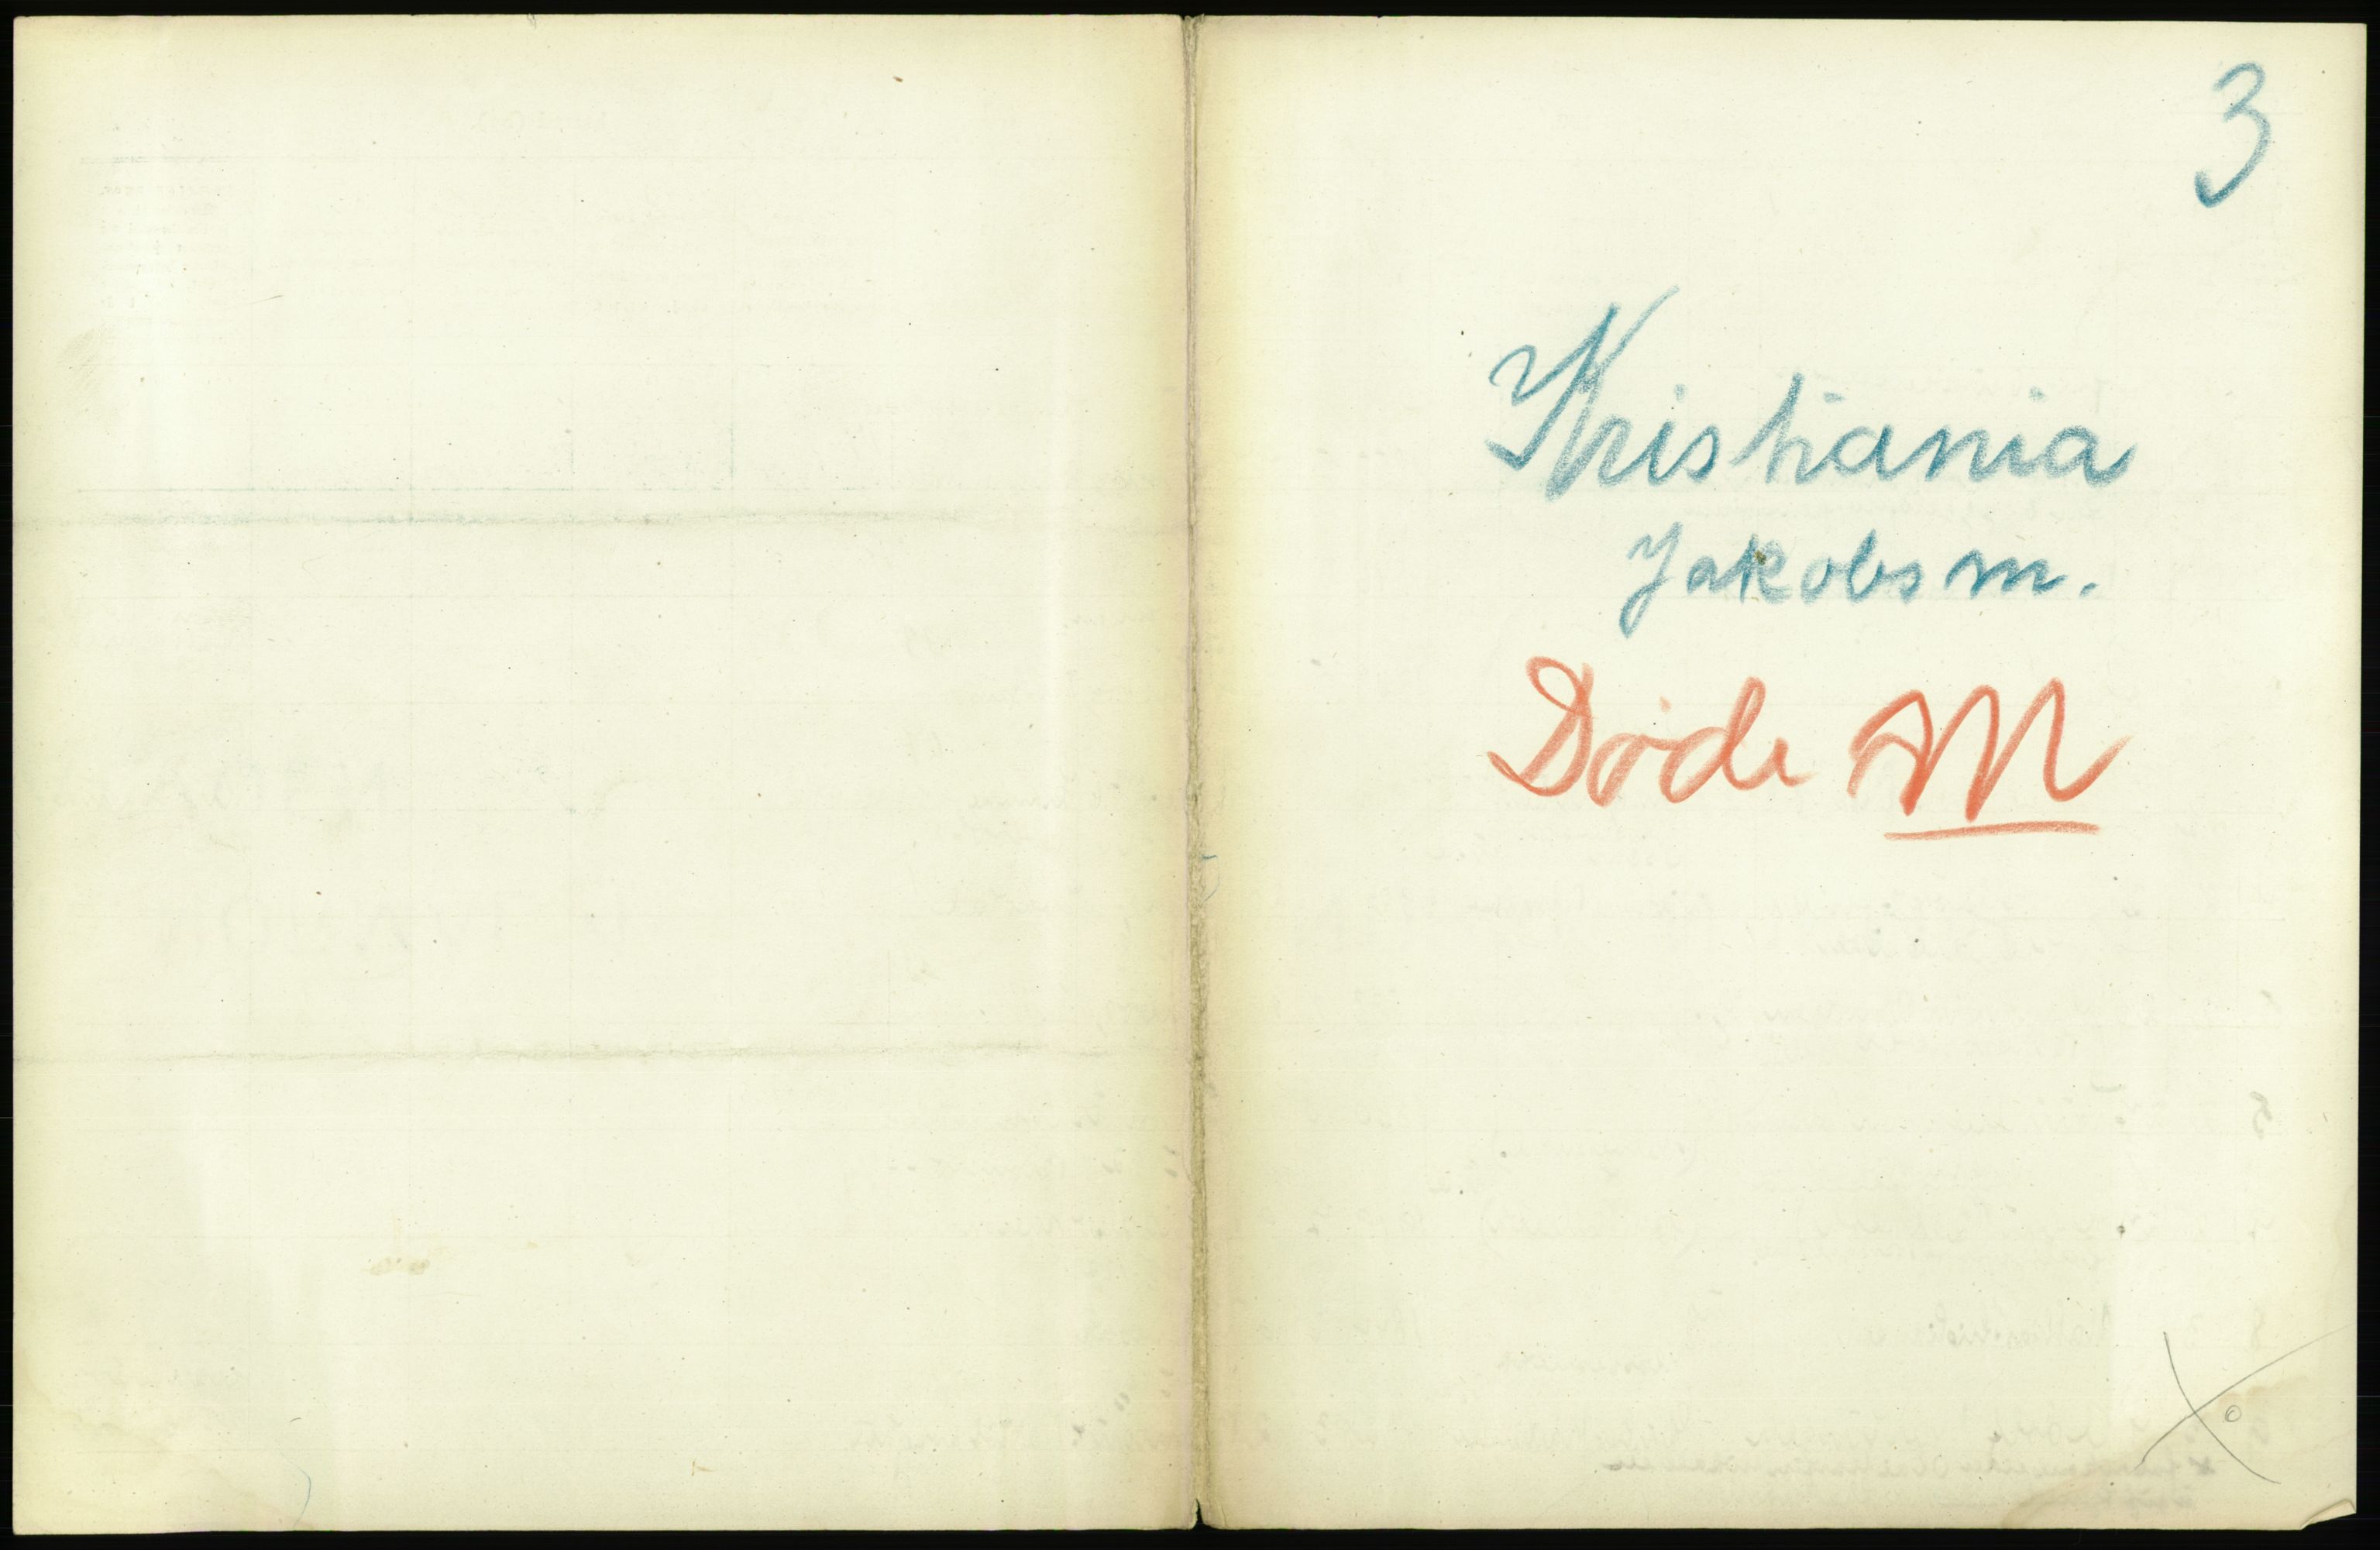 3
Kristiania
Jakobs m.
Døde M